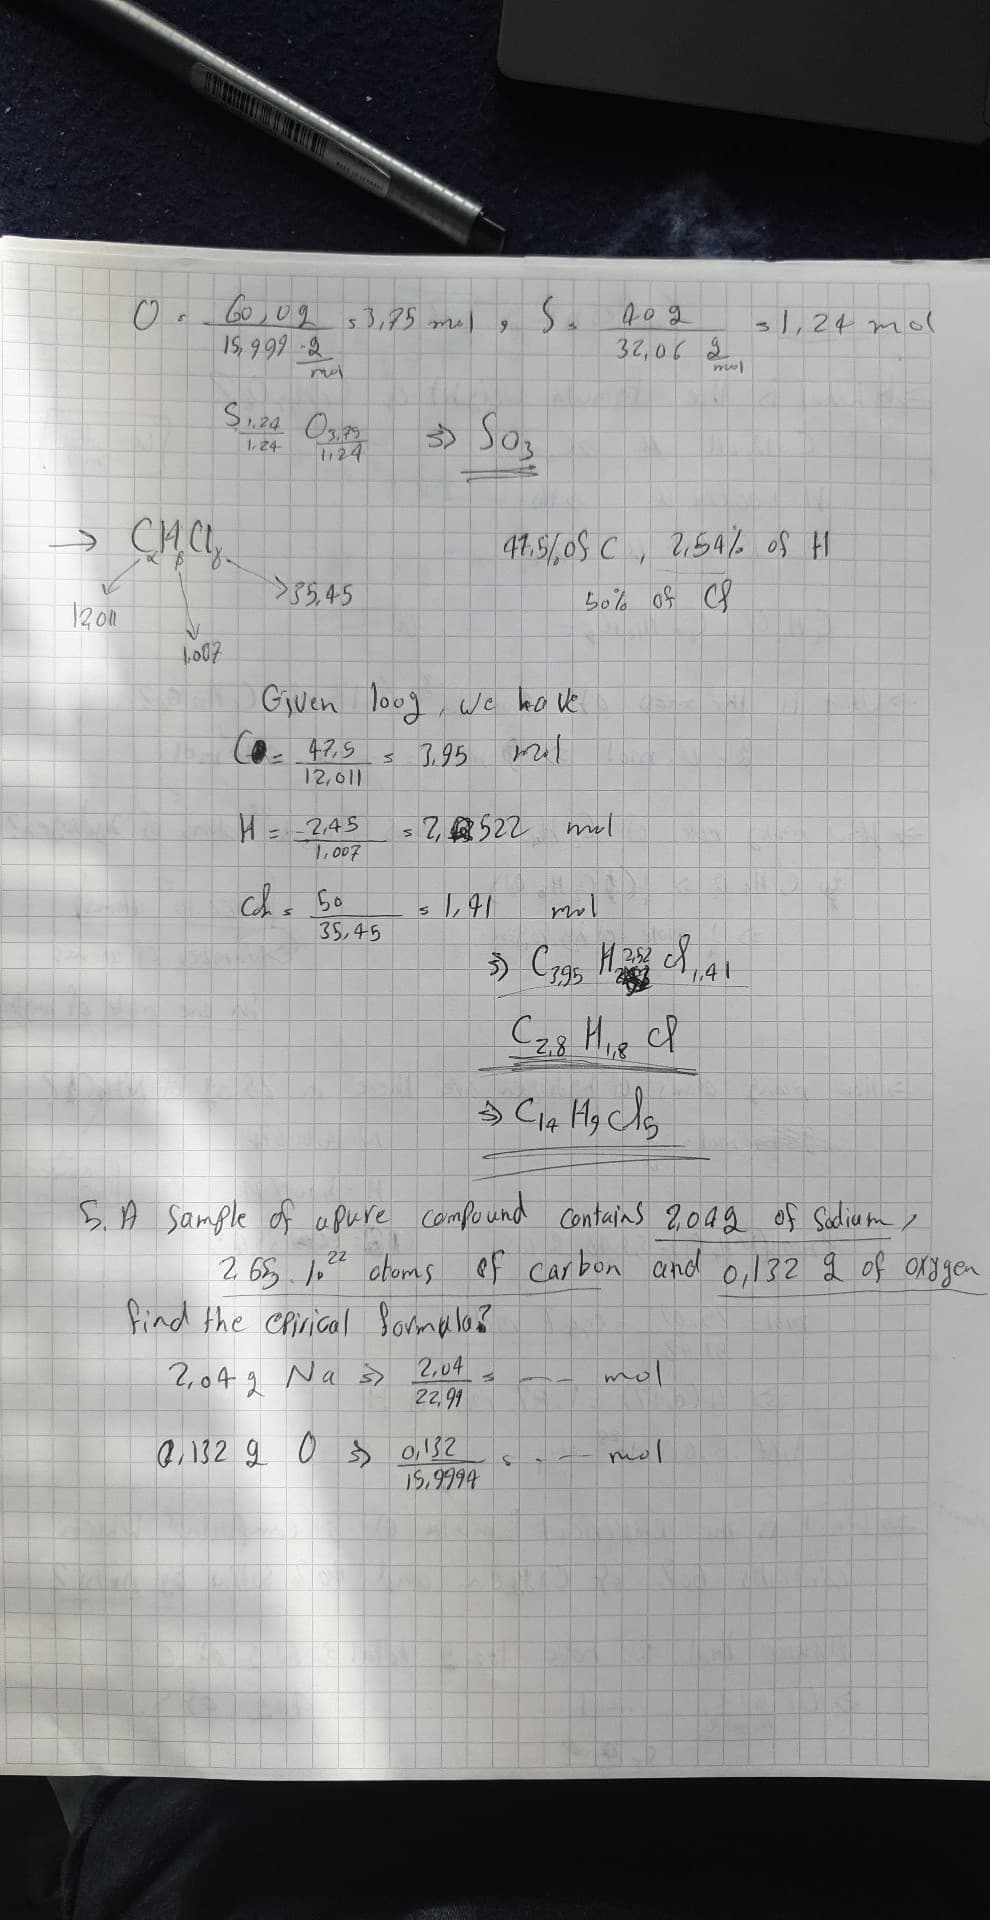 O = 60,0g / 15,999 g/mol = 3,75 mol , S = 40 g / 32,06 g/mol = 1,24 mol
S 1,24/1,24 O 3,75/1,24 ⇒ SO3
→ CαHβClγ 47,5% of C , 2,54% of H
12,011 35,45 50% of Cl
1,007
Given 100g, we have
C = 47,5 / 12,011 = 3,95 mol
H = 2,45 / 1,007 = 2,522 mol
Cl = 50 / 35,45 = 1,41 mol
⇒ C3,95 H2,52 Cl1,41
C2,8 H1,8 Cl
⇒ C14 H9 Cl5
5. A Sample of apure compound contains 2,04g of Sodium,
2,65 . 10^22 atoms of carbon and 0,132 g of oxygen
find the epirical formula?
2,04 g Na ⇒ 2,04 / 22,99 = --- mol
0,132 g O ⇒ 0,132 / 15,9994 = --- mol